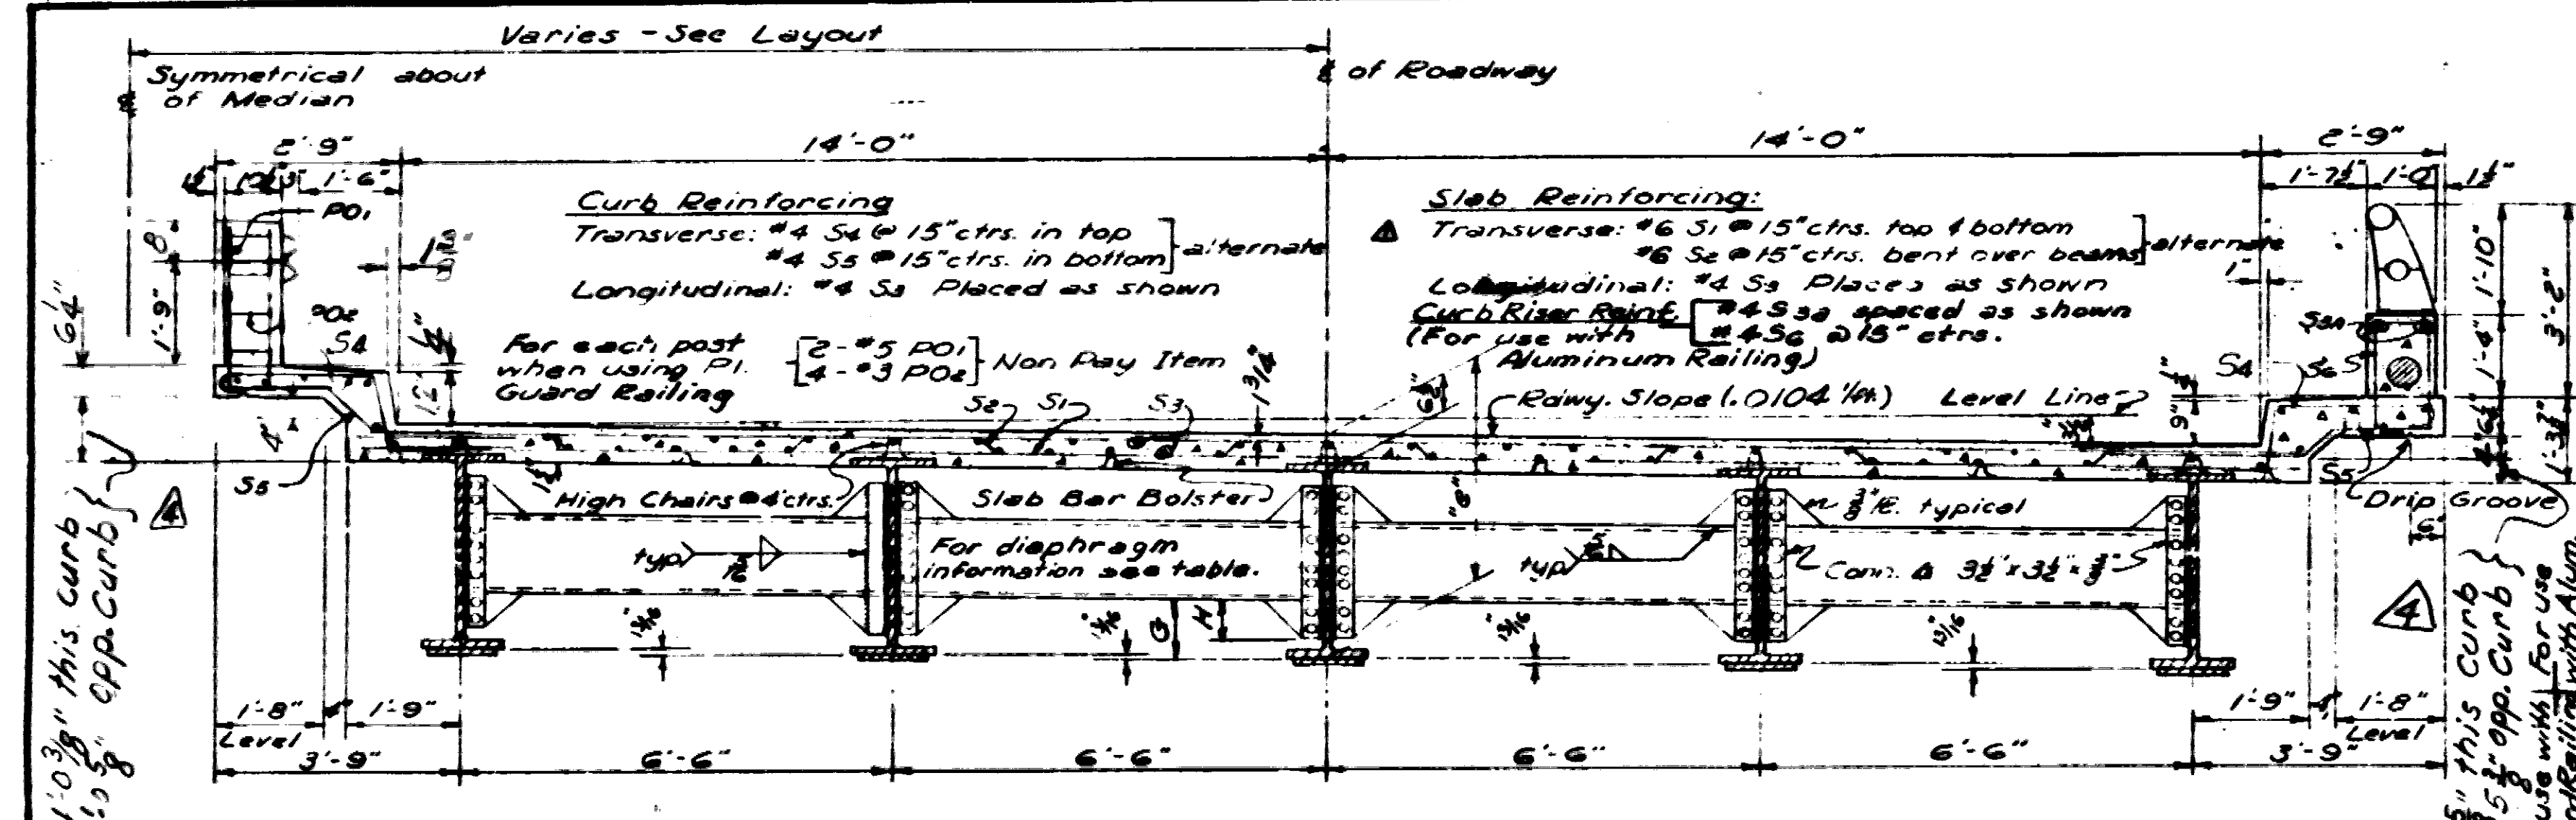 Varies - See Layout
Symmetrical about
℄ of Median
℄ of Roadway
2'-9"
14'-0"
14'-0"
2'-9"
1'-6"
1'-7½"
1'-0"
1½"
PO1
Curb Reinforcing
Transverse: #4 S4 @ 15" ctrs. in top
#4 S5 @ 15" ctrs. in bottom
alternate
Longitudinal: #4 S3 Placed as shown
For each post
when using Pl.
Guard Railing
2-#5 PO1
4-#3 PO2
Non Pay Item
Slab Reinforcing:
Transverse: #6 S1 @ 15" ctrs. top & bottom
#6 S2 @ 15" ctrs. bent over beams
alternate
Longitudinal: #4 S3 Placed as shown
Curb Riser Reinf.
(For use with
Aluminum Railing)
#4 S3a spaced as shown
#4 S6 @ 15" ctrs.
Rdwy. Slope (.0104 '/ft.)
Level Line
8
1'-9"
6¼"
PO2
S4
12"
4"
S5
S2
S1
S3
1 3/4"
6½"
1"
1'-10"
1'-4"
3'-2"
S3A
S4
S6
9"
S5
Drip Groove
6"
High Chairs @ 4' ctrs.
Slab Bar Bolster
8"
⅜" ℄. typical
typ.
5/16
For diaphragm
information see table.
typ
5/16
Conn. ∠ 3½" x 3½" x ⅜"
13/16"
13/16"
G
H
13/16"
13/16"
1'-8"
Level
1'-9"
1'-9"
1'-8"
Level
3'-9"
6'-6"
6'-6"
6'-6"
6'-6"
3'-9"
1'-0 3/8" this curb
opp. Curb
4
4
this Curb
opp. Curb
For use
with Alum.